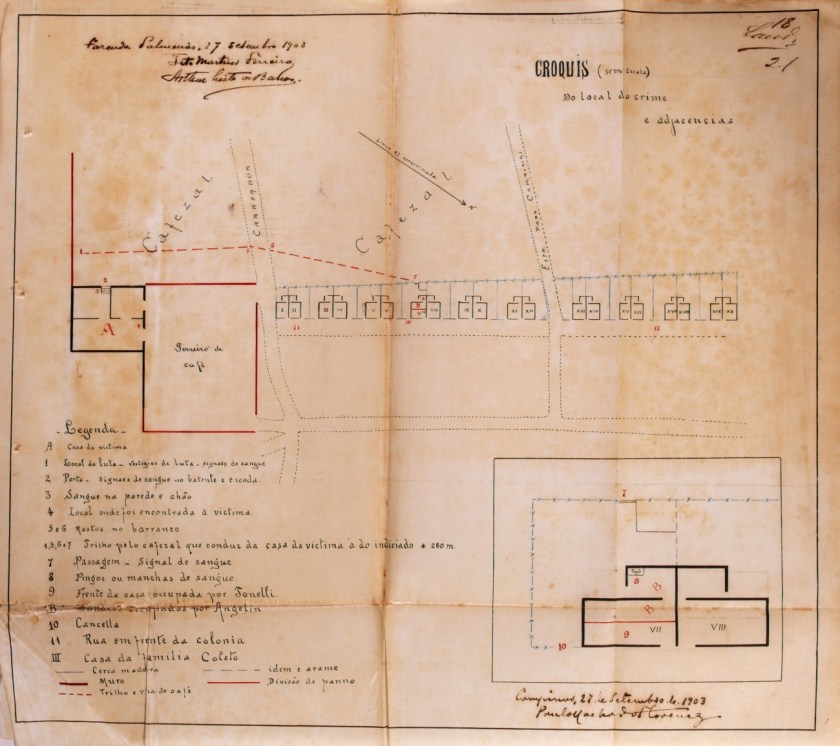 18
21
Fazenda Palmeiras, 27 setembro 1903
Martins Ferreira
CROQUIS (sem escala)
Do local do crime
e adjacencias
Cafezal
Carreador
Cafezal
N
Para Campinas
1
5
6
7
2
3
4
A
Terreiro de
café
I
II
III
IV
V
VI
VII
VIII
IX
X
XI
XII
XIII
XIV
XV
XVI
XVII
XVIII
XIX
XX
11
10
11
Legenda
A Casa da victima
1 Local da luta - vestigios de luta - signaes de sangue
2 Porta - signaes de sangue no batente e escada.
3 Sangue na parede e chão
4 Local onde foi encontrada á victima.
5 e 6 Rastos no barranco
1,5,6 e 7 Trilho pelo cafezal que conduz da casa da victima á do indiciado ± 260 m.
7 Passagem - Signal de sangue
8 Pingos ou manchas de sangue.
9 Frente da casa occupada por Tonelli.
B Fundos occupados por Angelin
10 Cancella
11 Rua em frente da colonia
III Casa da familia Coleto
Cerca madeira
idem e arame
Muro
Divisão de panno
Trilho e rua de café
7
8
B
B
9
VII
VIII
10
Campinas, 27 de Setembro de 1903